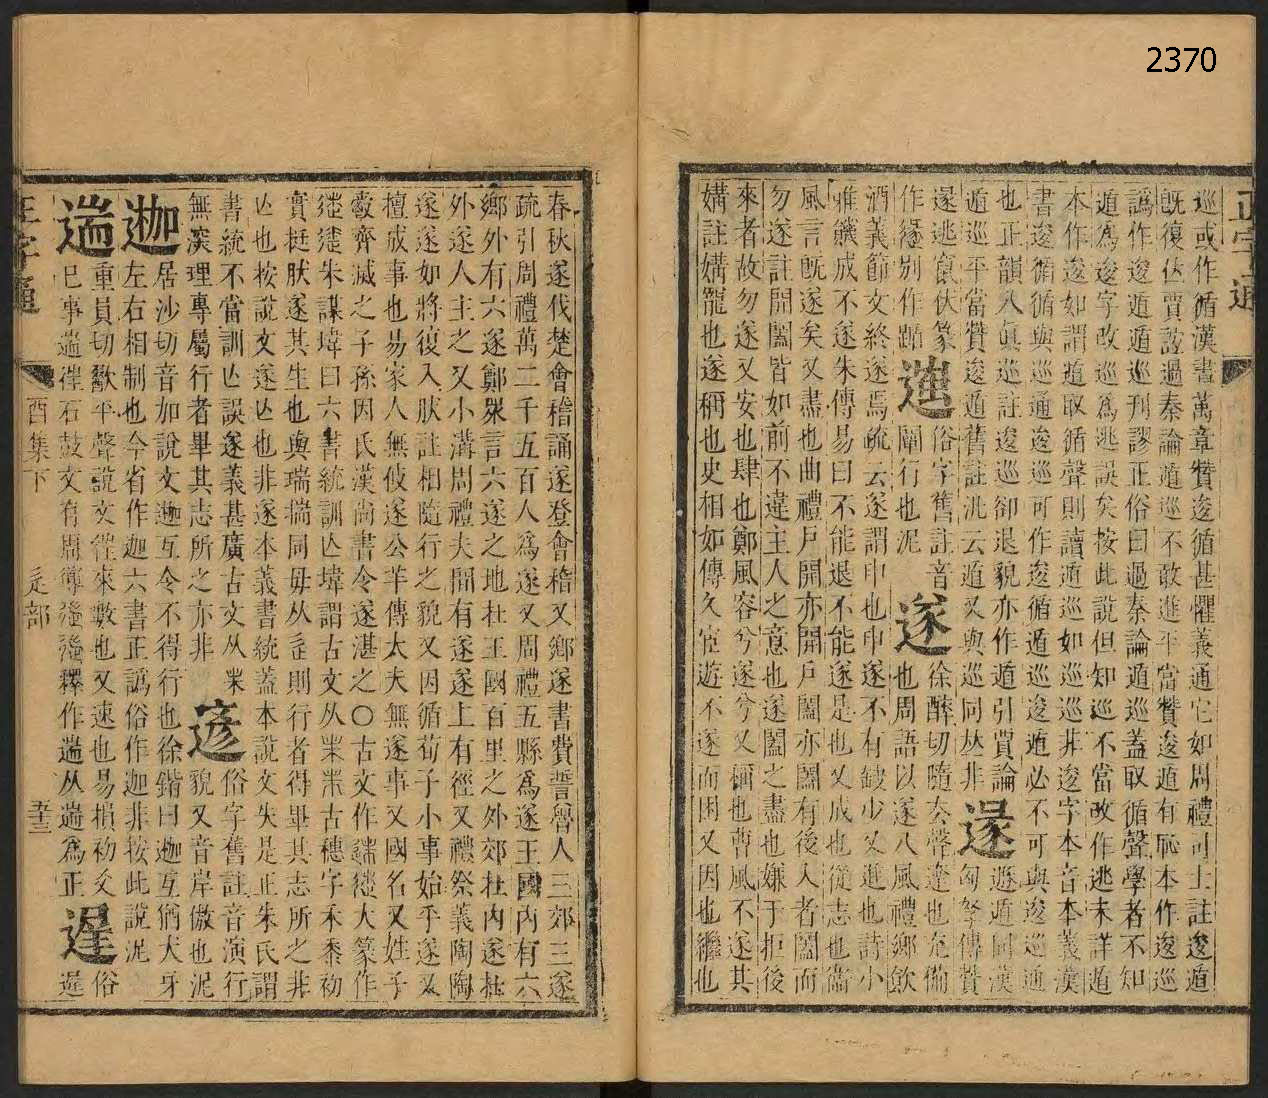 2370
正字通
巡或作循漢書萬章贊逡循甚懼義通它如周禮司士註逡遁
旣復佉賈誼過秦論遁巡不敢進平當贊逡遁有恥本作逡巡
譌作逡遁遁巡刊謬正俗曰過秦論遁巡蓋取循聲學者不知
遁爲逡字改巡爲逃誤矣按此說但知巡不當改作逃未詳遁
本作逡如謂遁取循聲則讀遁巡如巡巡非逡字本音本義漢
書逡循循與巡通逡巡可作逡循遁巡逡遁必不可與逡巡通
也正韻入眞巡註逡巡卻退貌亦作遁引賈論
遁巡平當贊逡遁舊註沘云遁又與巡同𠀤非
遯逃竄伏篆
作別作踲
俗字舊註音闡行也泥
遂
徐醉切隨去聲達也充備也周語以遂八風禮鄉飮
酒義節文終遂焉疏云遂謂申也申遂不有缺少又進也詩小
雅饑成不遂朱傳易曰不能退不能遂是也又成也從志也衞
風言旣遂矣又盡也曲禮戶開亦開戶闔亦闔有後入者闔而
勿遂註開闔皆如前不違主人之意也遂闔之盡也嫌于拒後
來者故勿遂又安也肆也鄭風容兮遂兮又稱也曹風不遂其
媾註媾寵也遂稱也史相如傳久宦遊不遂而困又因也繼也
春秋遂伐楚會稽誦遂登會稽又鄉遂書費誓魯人三郊三遂
疏引周禮萬二千五百人爲遂又周禮五縣爲遂王國內有六
鄉外有六遂鄭眾言六遂之地在王國百里之外郊杜內遂杜
外遂人主之又小溝周禮夫間有遂遂上有徑又禮祭義陶陶
遂遂如將復入肰註相隨行之貌又因循荀子小事始乎遂又
檀成事也易家人無攸遂公羊傳大夫無遂事又國名又姓子
穀齊滅之子孫因氏漢尚書令遂湛之○古文作大篆作
朱謀㙔曰六書統訓亾㙔謂古文从釆釆古穗字禾黍初
實挺肰遂其生也與瑞耑同毋从辵則行者得畢其志所之非
亾也按說文遂亾也非遂本義書統蓋本說文失是正朱氏謂
書統不當訓亾誤遂義甚廣古文从釆
無深理專屬行者畢其志所之亦非
俗字舊註音演行
貌又音岸傲也泥
迦
居沙切音加說文迦互令不得行也徐鍇曰迦互猶犬牙
左右相制也今省作迦六書正譌俗作迦非按此說泥
遄
重員切歂平聲說文徃來數也又速也易損初爻
巳事遄徃石鼓文有釋作遄从遄爲正
遟
俗
遲
正字通
酉集下
辵部
五十三